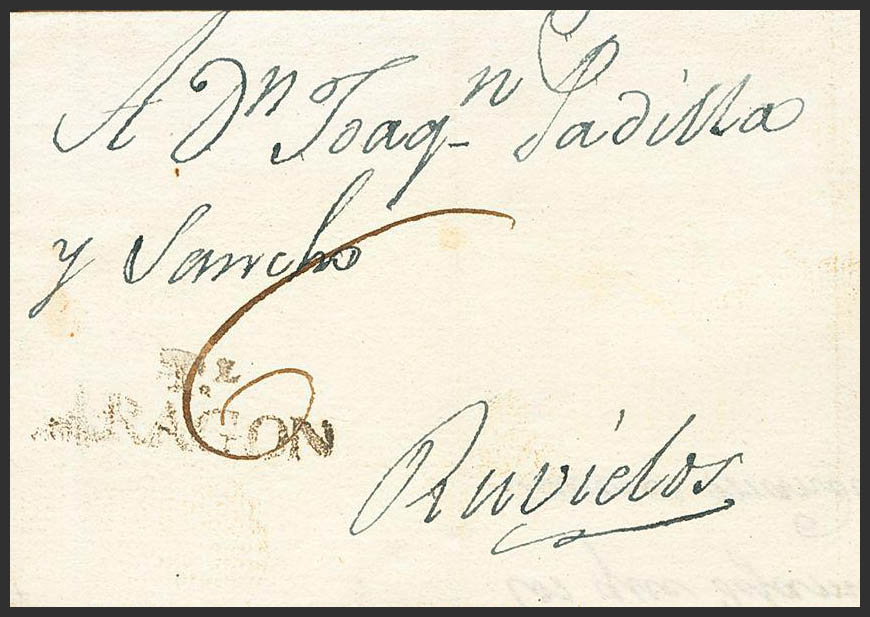 A Dn Joaqn Padilla
y Sancho
6
T.L
ARAGON
Ruvielos